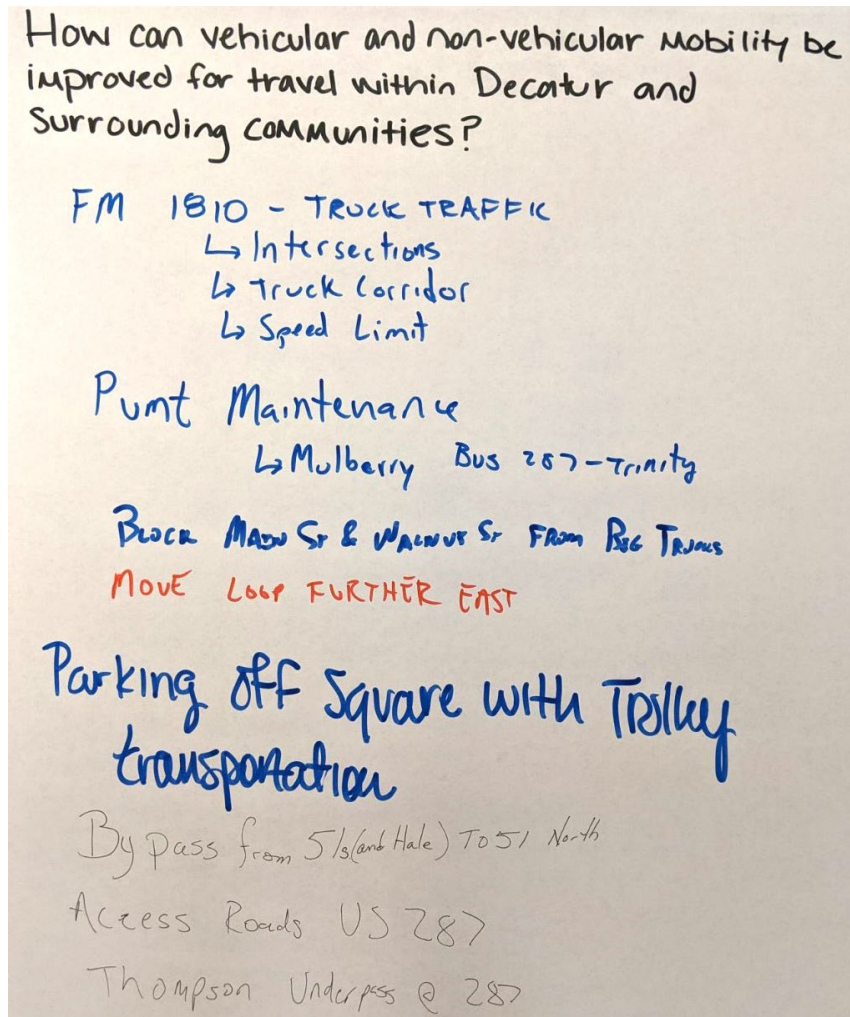 How can vehicular and non-vehicular mobility be
improved for travel within Decatur and
Surrounding communities?
FM 1810 - TRUCK TRAFFIC
↳ Intersections
↳ Truck Corridor
↳ Speed Limit
Pvmt Maintenance
↳ Mulberry Bus 287-Trinity
BLOCK MAIN ST & WALNUT ST FROM BIG TRUCKS
MOVE LOOP FURTHER EAST
Parking off Square with Trolley
transportation
By pass from 51s(and Hale) To 51 North
Access Roads US 287
Thompson Underpass @ 287